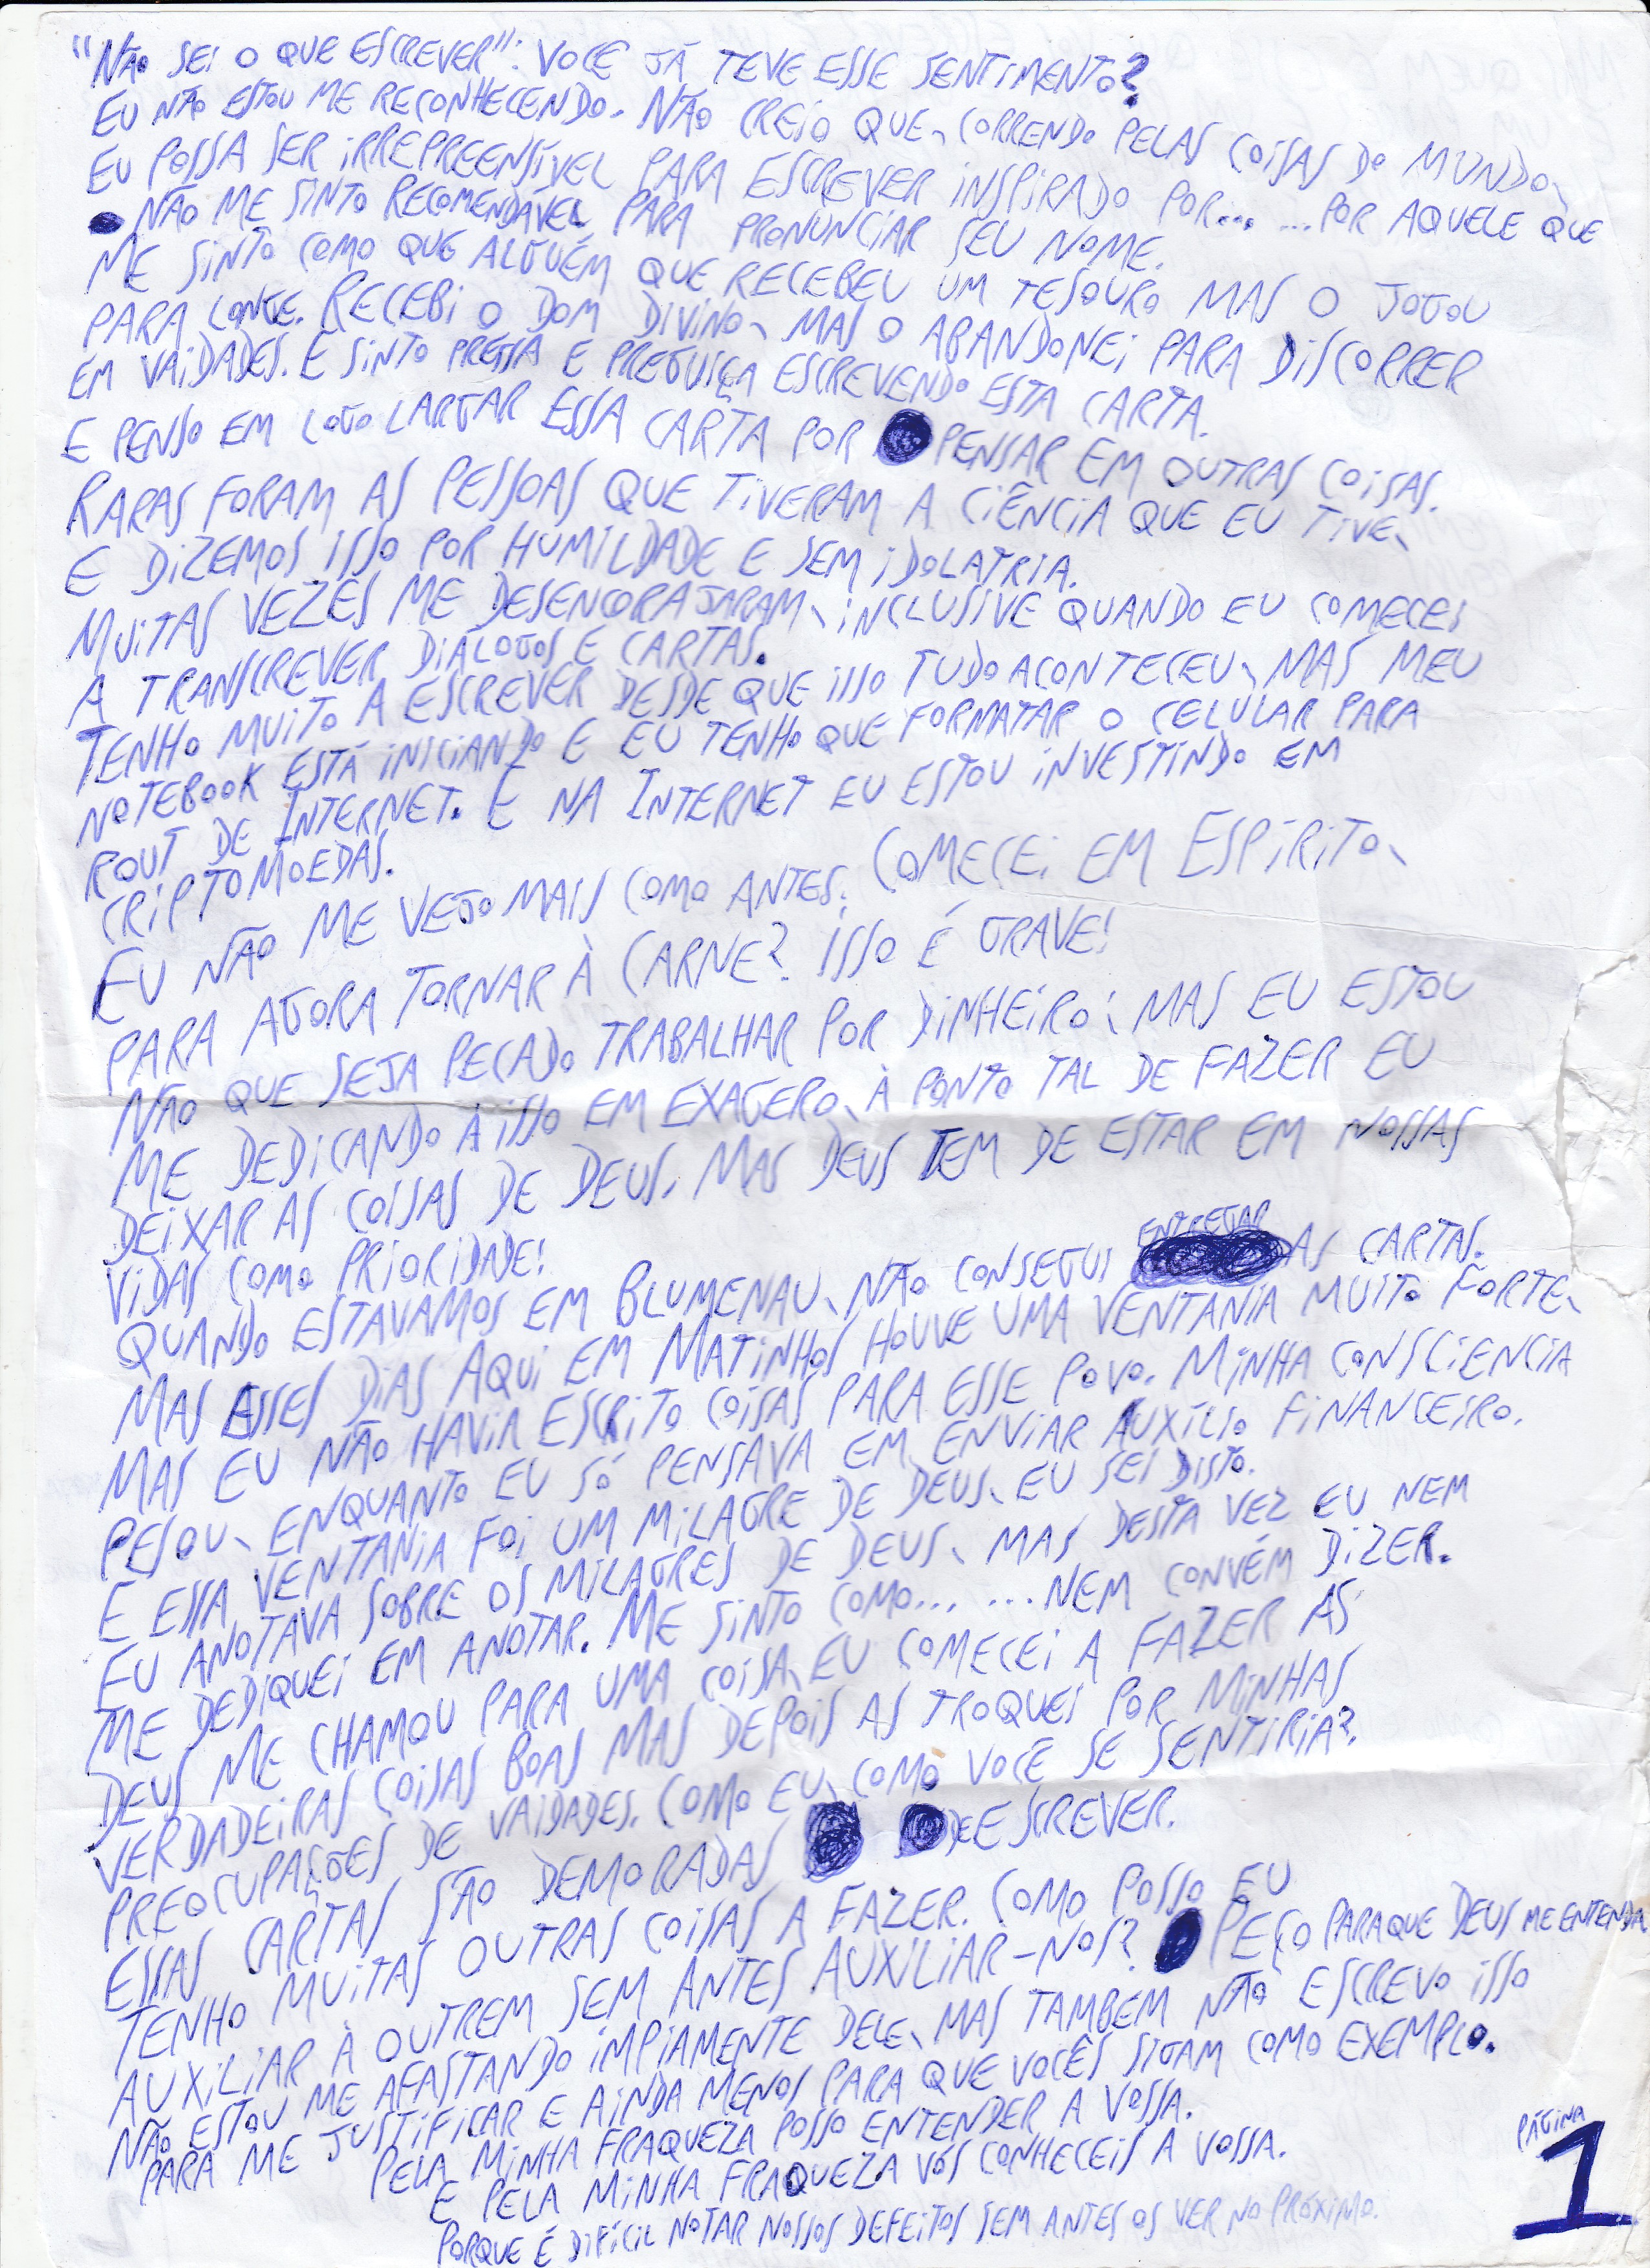 "NÃO SEI O QUE ESCREVER": VOCÊ JÁ TEVE ESSE SENTIMENTO?
EU NÃO ESTOU ME RECONHECENDO. NÃO CREIO QUE, CORRENDO PELAS COISAS DO MUNDO,
EU POSSA SER IRREPREENSÍVEL PARA ESCREVER INSPIRADO POR... ...POR AQUELE QUE
NÃO ME SINTO RECOMENDÁVEL PARA PRONUNCIAR SEU NOME.
ME SINTO COMO QUE ALGUÉM QUE RECEBEU UM TESOURO, MAS O JOGOU
PARA LONGE. RECEBI O DOM DIVINO, MAS O ABANDONEI PARA DISCORRER
EM VAIDADES. E SINTO PRESSA E PREGUIÇA ESCREVENDO ESTA CARTA.
E PENSO EM LOGO LARGAR ESSA CARTA POR PENSAR EM OUTRAS COISAS.
RARAS FORAM AS PESSOAS QUE TIVERAM A CIÊNCIA QUE EU TIVE,
E DIZEMOS ISSO POR HUMILDADE E SEM IDOLATRIA.
MUITAS VEZES ME DESENCORAJARAM, INCLUSIVE QUANDO EU COMECEI
A TRANSCREVER DIÁLOGOS E CARTAS.
TENHO MUITO A ESCREVER DESDE QUE ISSO TUDO ACONTECEU, MAS MEU
NOTEBOOK ESTÁ INICIANDO E EU TENHO QUE FORMATAR O CELULAR PARA
ROUT DE INTERNET. E NA INTERNET EU ESTOU INVESTINDO EM
CRIPTOMOEDAS.
EU NÃO ME VEJO MAIS COMO ANTES. COMECEI EM ESPÍRITO,
PARA AGORA TORNAR À CARNE? ISSO É GRAVE!
NÃO QUE SEJA PECADO TRABALHAR POR DINHEIRO; MAS EU ESTOU
ME DEDICANDO A ISSO EM EXAGERO, À PONTO TAL DE FAZER EU
DEIXAR AS COISAS DE DEUS. MAS DEUS TEM DE ESTAR EM NOSSAS
VIDAS COMO PRIORIDADE!
QUANDO ESTAVAMOS EM BLUMENAU, NÃO CONSEGUI ENTREGAR AS CARTAS.
MAS ESSES DIAS AQUI EM MATINHOS HOUVE UMA VENTANIA MUITO FORTE,
MAS EU NÃO HAVIA ESCRITO COISAS PARA ESSE POVO. MINHA CONSCIENCIA
PESOU, ENQUANTO EU SÓ PENSAVA EM ENVIAR AUXÍLIO FINANCEIRO.
E ESSA VENTANIA FOI UM MILAGRE DE DEUS, EU SEI DISTO.
EU ANOTAVA SOBRE OS MILAGRES DE DEUS, MAS DESTA VEZ EU NEM
ME DEDIQUEI EM ANOTAR. ME SINTO COMO... ...NEM CONVÉM DIZER.
DEUS ME CHAMOU PARA UMA COISA, EU COMECEI A FAZER AS
VERDADEIRAS COISAS BOAS MAS DEPOIS AS TROQUEI POR MINHAS
PREOCUPAÇÕES DE VAIDADES. COMO EU, COMO VOCÊ SE SENTIRIA?
ESSAS CARTAS SÃO DEMORADAS DE ESCREVER.
TENHO MUITAS OUTRAS COISAS A FAZER. COMO POSSO EU
AUXILIAR À OUTREM SEM ANTES AUXILIAR-NOS? PEÇO PARA QUE DEUS ME ENTENDA
NÃO ESTOU ME AFASTANDO IMPIAMENTE DELE, MAS TAMBEM NÃO ESCREVO ISSO
PARA ME JUSTIFICAR E AINDA MENOS PARA QUE VOCÊS SIGAM COMO EXEMPLO.
PELA MINHA FRAQUEZA POSSO ENTENDER A VOSSA.
E PELA MINHA FRAQUEZA VÓS CONHECEIS A VOSSA.
PORQUE É DIFÍCIL NOTAR NOSSOS DEFEITOS SEM ANTES OS VER NO PRÓXIMO.
PÁGINA
1